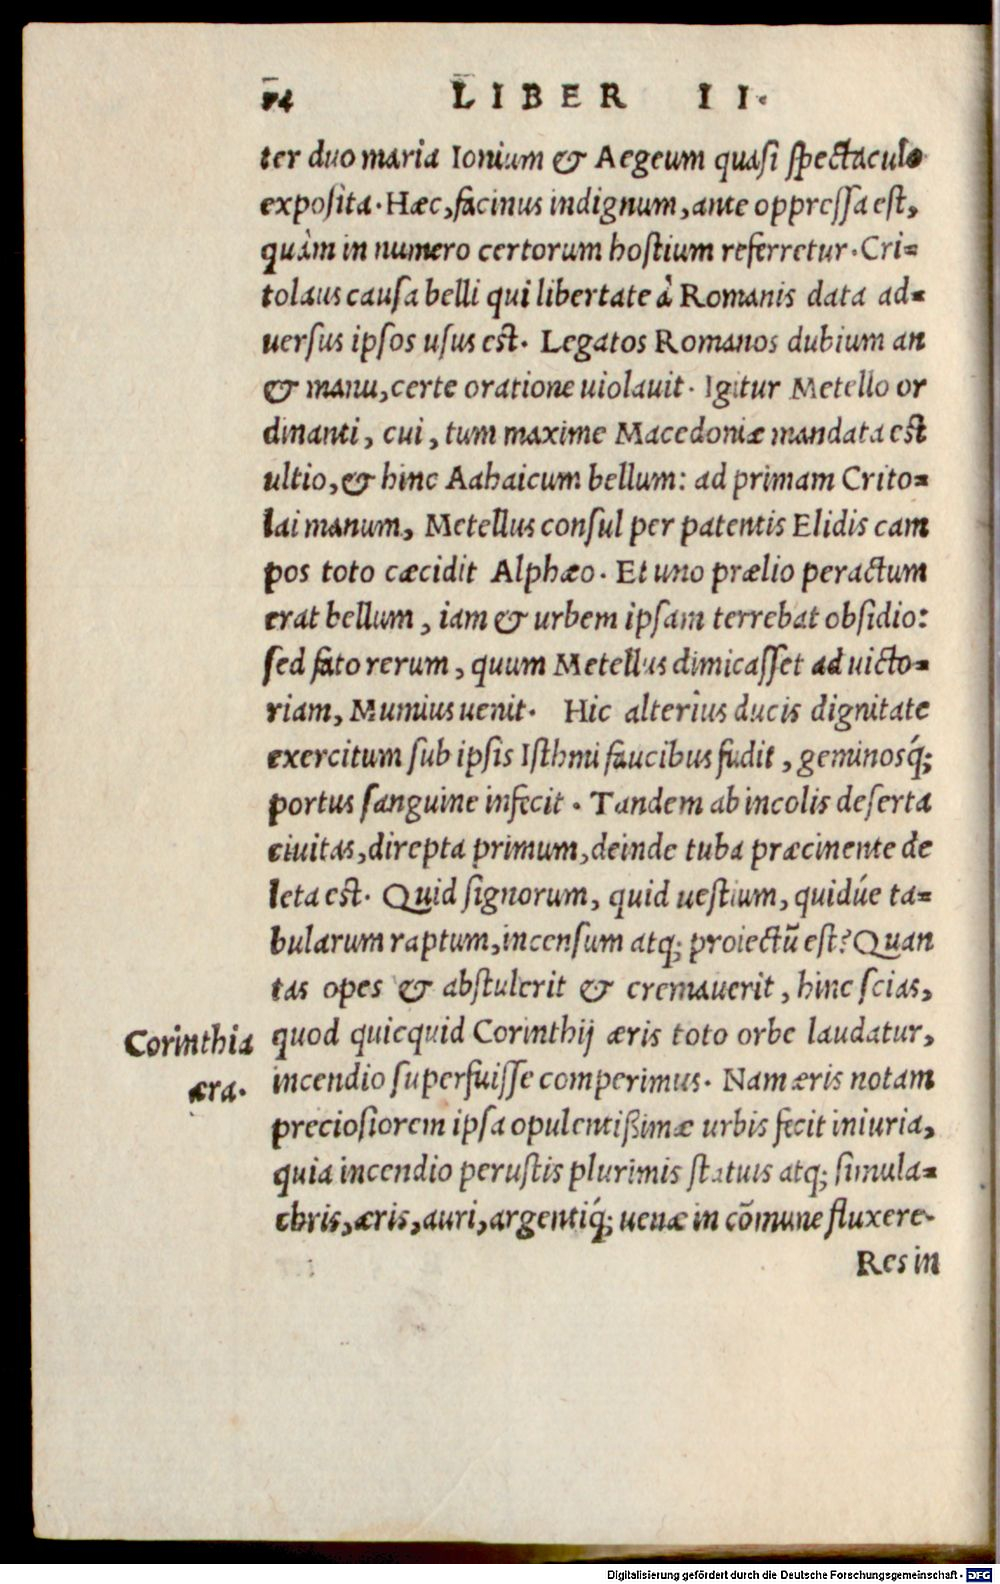 94 LIBER II.
ter duo maria Ionium & Aegeum quasi spectaculo
exposita. Hæc, facinus indignum, ante oppressa est,
quàm in numero certorum hostium referretur. Cri=
tolaus causa belli qui libertate à Romanis data ad=
uersus ipsos usus est. Legatos Romanos dubium an
& manu, certe oratione uiolauit. Igitur Metello or
dinanti, cui, tum maxime Macedoniæ mandata est
ultio, & hinc Aahaicum bellum: ad primam Crito=
lai manum, Metellus consul per patentis Elidis cam
pos toto cæcidit Alphæo. Et uno prælio peractum
erat bellum, iam & urbem ipsam terrebat obsidio:
sed fato rerum, quum Metellus dimicasset ad uicto=
riam, Mumius uenit. Hic alterius ducis dignitate
exercitum sub ipsis Isthmi faucibus fudit, geminosq́;
portus sanguine infecit. Tandem ab incolis deserta
ciuitas, direpta primum, deinde tuba præcinente de
leta est. Quid signorum, quid uestium, quidúe ta=
bularum raptum, incensum atq; proiectũ est? Quan
tas opes & abstulerit & cremauerit, hinc scias,
quod quicquid Corinthij æris toto orbe laudatur,
Corinthia
æra.
incendio superfuisse comperimus. Nam æris notam
preciosiorem ipsa opulentißimæ urbis fecit iniuria,
quia incendio perustis plurimis statuis atq; simula=
chris, æris, auri, argentiq́; uenæ in cõmune fluxere.
Res in
Digitalisierung gefördert durch die Deutsche Forschungsgemeinschaft - DFG